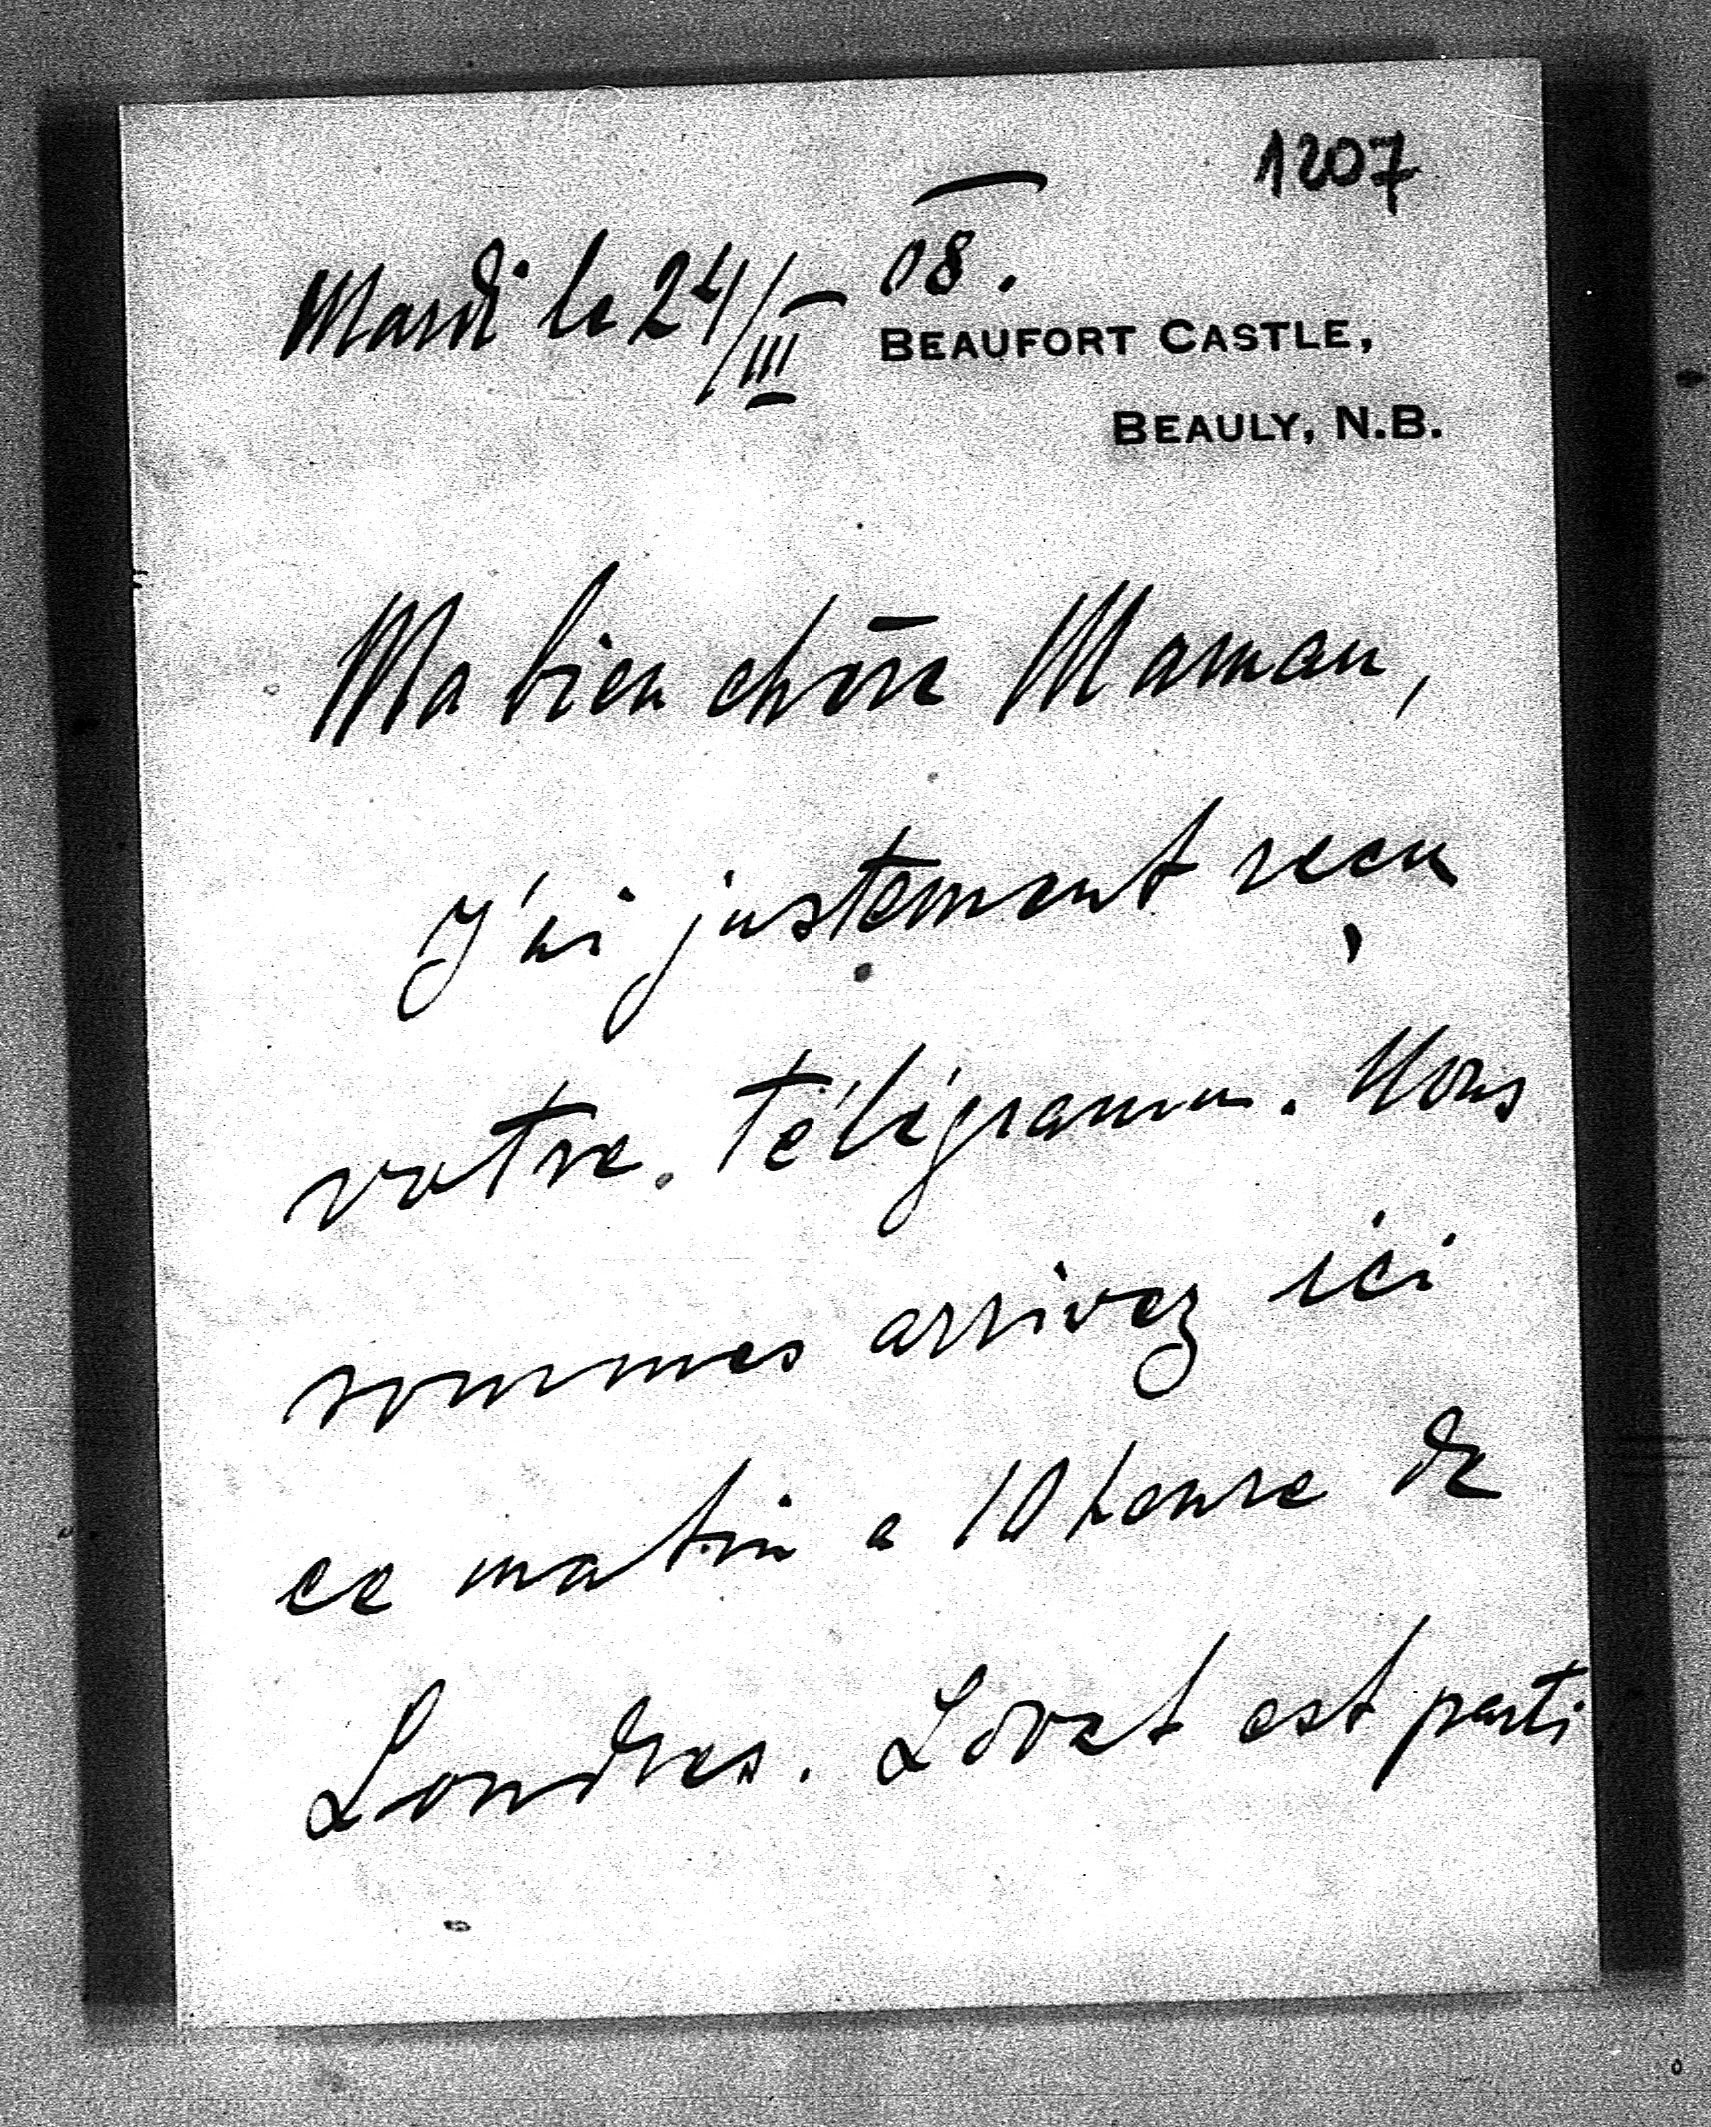 1207
Mardi le 24/III 08.
BEAUFORT CASTLE,
BEAULY, N.B.
Ma bien chère Maman,
J'ai justement reçu
votre télégramme. Nous
sommes arrivez ici
ce matin a 10 heure de
Londres. Lovat est parti